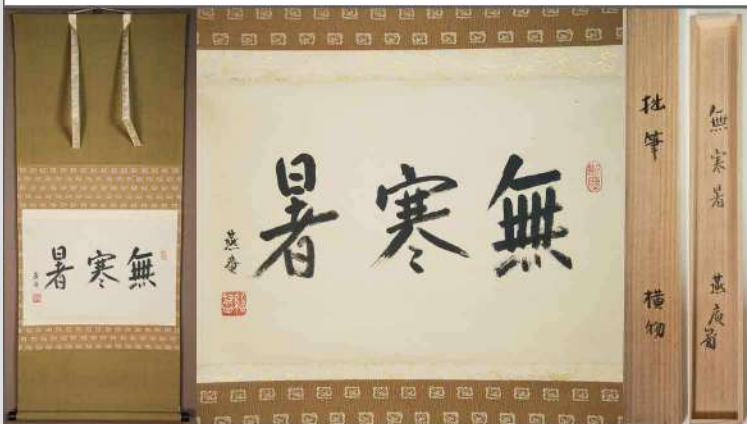 無寒暑
燕庵
無寒暑
燕庵
拙筆
横物
無寒暑
燕庵